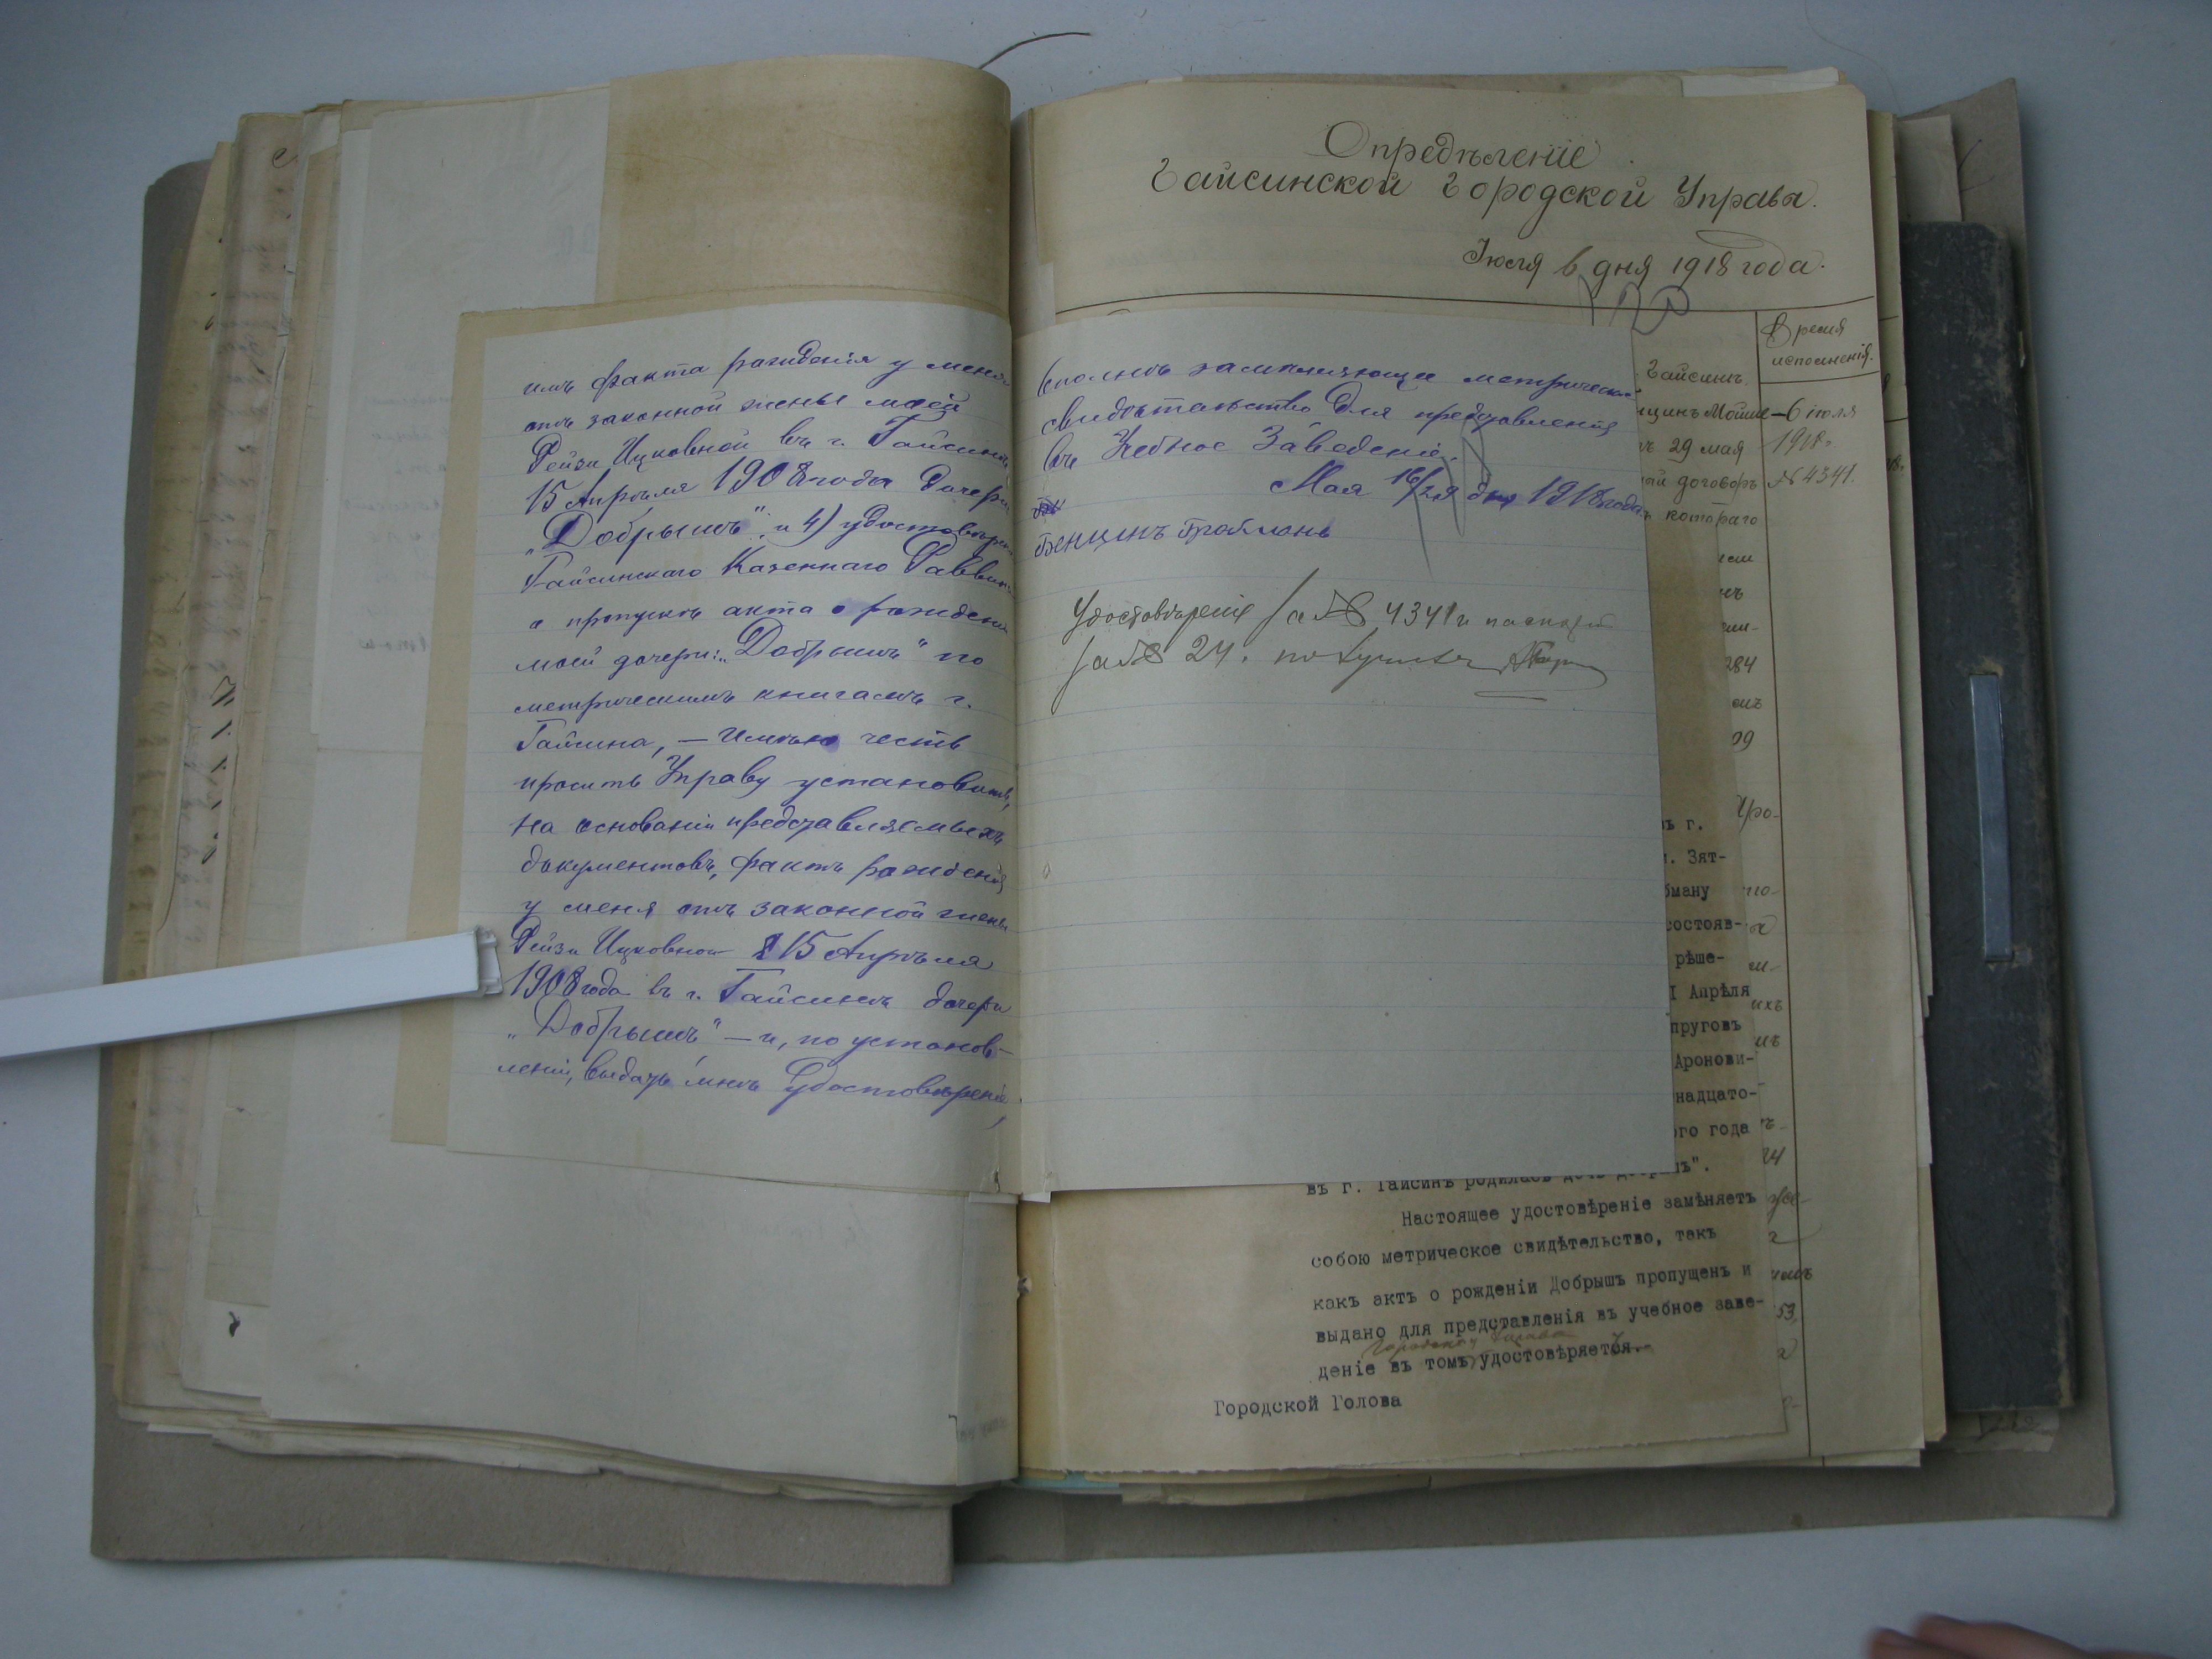 имъ факта рожденія у меня
отъ законной жены моей
Рейзи Ицковной въ г. Гайсинѣ
15 Апрѣля 1908 года дочери
„Добрышъ“; и 4) удостовѣрен.
Гайсинскаго Казеннаго Раввина
о пропускѣ акта о рожденіи
моей дочери: „Добрышъ“ по
метрическимъ книгамъ г.
Гайсина, — Имѣю честь
просить Управу установить,
на основаніи представляемыхъ
документовъ, фактъ рожденія
у меня отъ законной жены
Рейзи Ицковной 15 Апрѣля
1908 года въ г. Гайсинѣ дочери
„Добрышъ“ — и, по установ-
леніи, выдать мнѣ Удостовѣреніе,
вполнѣ замѣняющее метрическое
свидѣтельство для представленія
въ Учебное Заведеніе.
Мая 16/29 дня 1918 года
Бенцинъ
Удостовѣреніе за № 4341 и
за № 24. получилъ
Опредѣленіе
Гайсинской Городской Управы.
Іюля 6 дня 1918 года.
Время
исполненія.
Гайсинъ
Мойше
29 мая
договоръ
котораго
284
09
6 іюля
1918 г.
№ 4341.
ъ г.
. Зят-
бману
состоя​в-
рѣше-
I Апрѣля
пруговъ
Аронови-
надцато-
го года
53,
въ г. Гайсинѣ родилась дочь Добрышъ".
Настоящее удостовѣреніе замѣняетъ
собою метрическое свидѣтельство, такъ
какъ актъ о рожденіи Добрышъ пропущенъ и
выдано для представленія въ учебное заве-
Городской Голова
деніе въ томъ удостовѣряется.-
Городской Голова